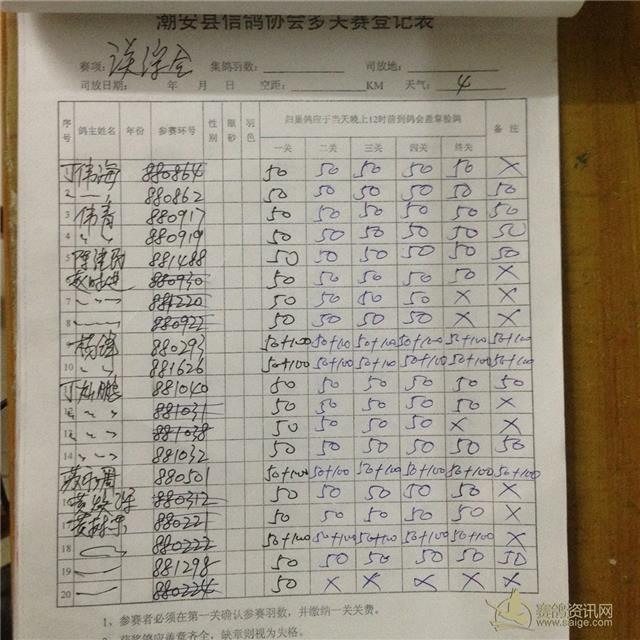 潮安县信鸽协会多关赛登记表
赛项: 集鸽羽数: 司放地:
司放日期: 年 月 日 空距: KM 天气: 4
序号 鸽主姓名 年份 参赛环号 性别 眼砂 羽色 归巢鸽应于当天晚上12时前到鸽会盖章验鸽 备 注
一关 二关 三关 四关 终关
丁伟海 880864 50 50 50 50 50 ×
2 880862 50 50 50 50 50 50
3 伟青 880917 50 50 50 50 50 50
4 〃 〃 880919 50 50 50 50 50 50
5 881488 50 50 50 50 50 50
880930 50 50 50 50 50 ×
7 〃 〃 881220 50 50 50 50 × ×
8 880922 50 50 50 50 × ×
杨 880293 50+100 50+100 50+100 50+100 50+100 50+100
10 881626 50+100 50+100 50+100 50+100 50+100 50+100
丁灿鹏 881040 50 50 50 50 50 50
12 〃 〃 881031 50 50 50 50 50 ×
13 〃 〃 881038 50 50 50 50 × ×
14 〃 〃 881032 50 50 50 50 50 50
880501 50+100 50+100 50+100 50+100 50+100 50+100
16 880312 50 50 50 50 50 ×
黄 880221 50 50 50 50 50 ×
18 880222 50+100 50+100 50+100 50+100 50+100 ×
19 881298 50 50 50 50 50 50
20 880224 50 × × × × ×
1、参赛者必须在第一关确认参赛羽数，并缴纳一关关费。
2、获奖鸽应盖章齐全，缺章则视为失格。
赛鸽资讯网
www.saige.com